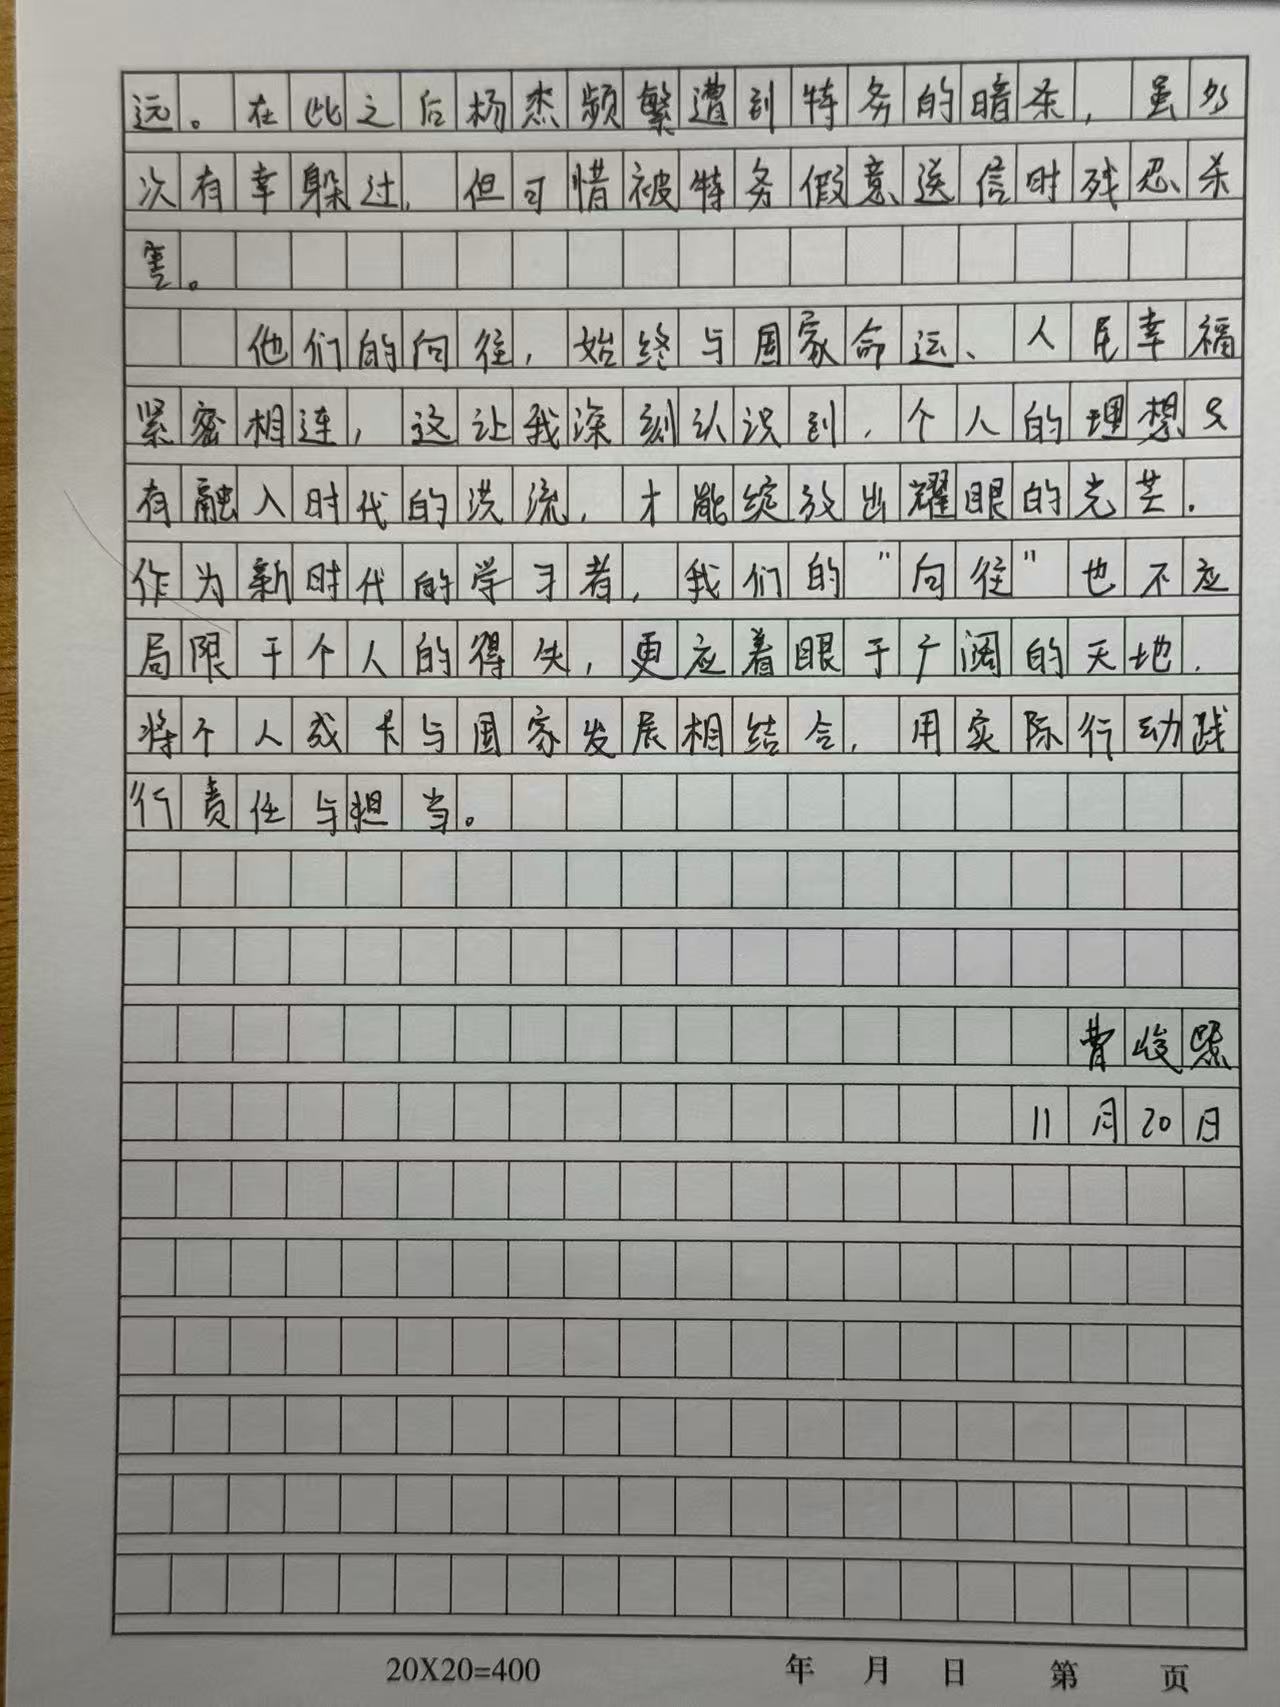 远。在此之后杨杰频繁遭到特务的暗杀，虽多
次有幸躲过，但可惜被特务假意送信时残忍杀
害。
他们的向往，始终与国家命运、人民幸福
紧密相连，这让我深刻认识到，个人的理想只
有融入时代的洪流，才能绽放出耀眼的光芒。
作为新时代的学习者，我们的“向往”也不应
局限于个人的得失，更应着眼于广阔的天地，
将个人成长与国家发展相结合，用实际行动践
行责任与担当。
曹峻熙
11月20日
20X20=400 年 月 日 第 页